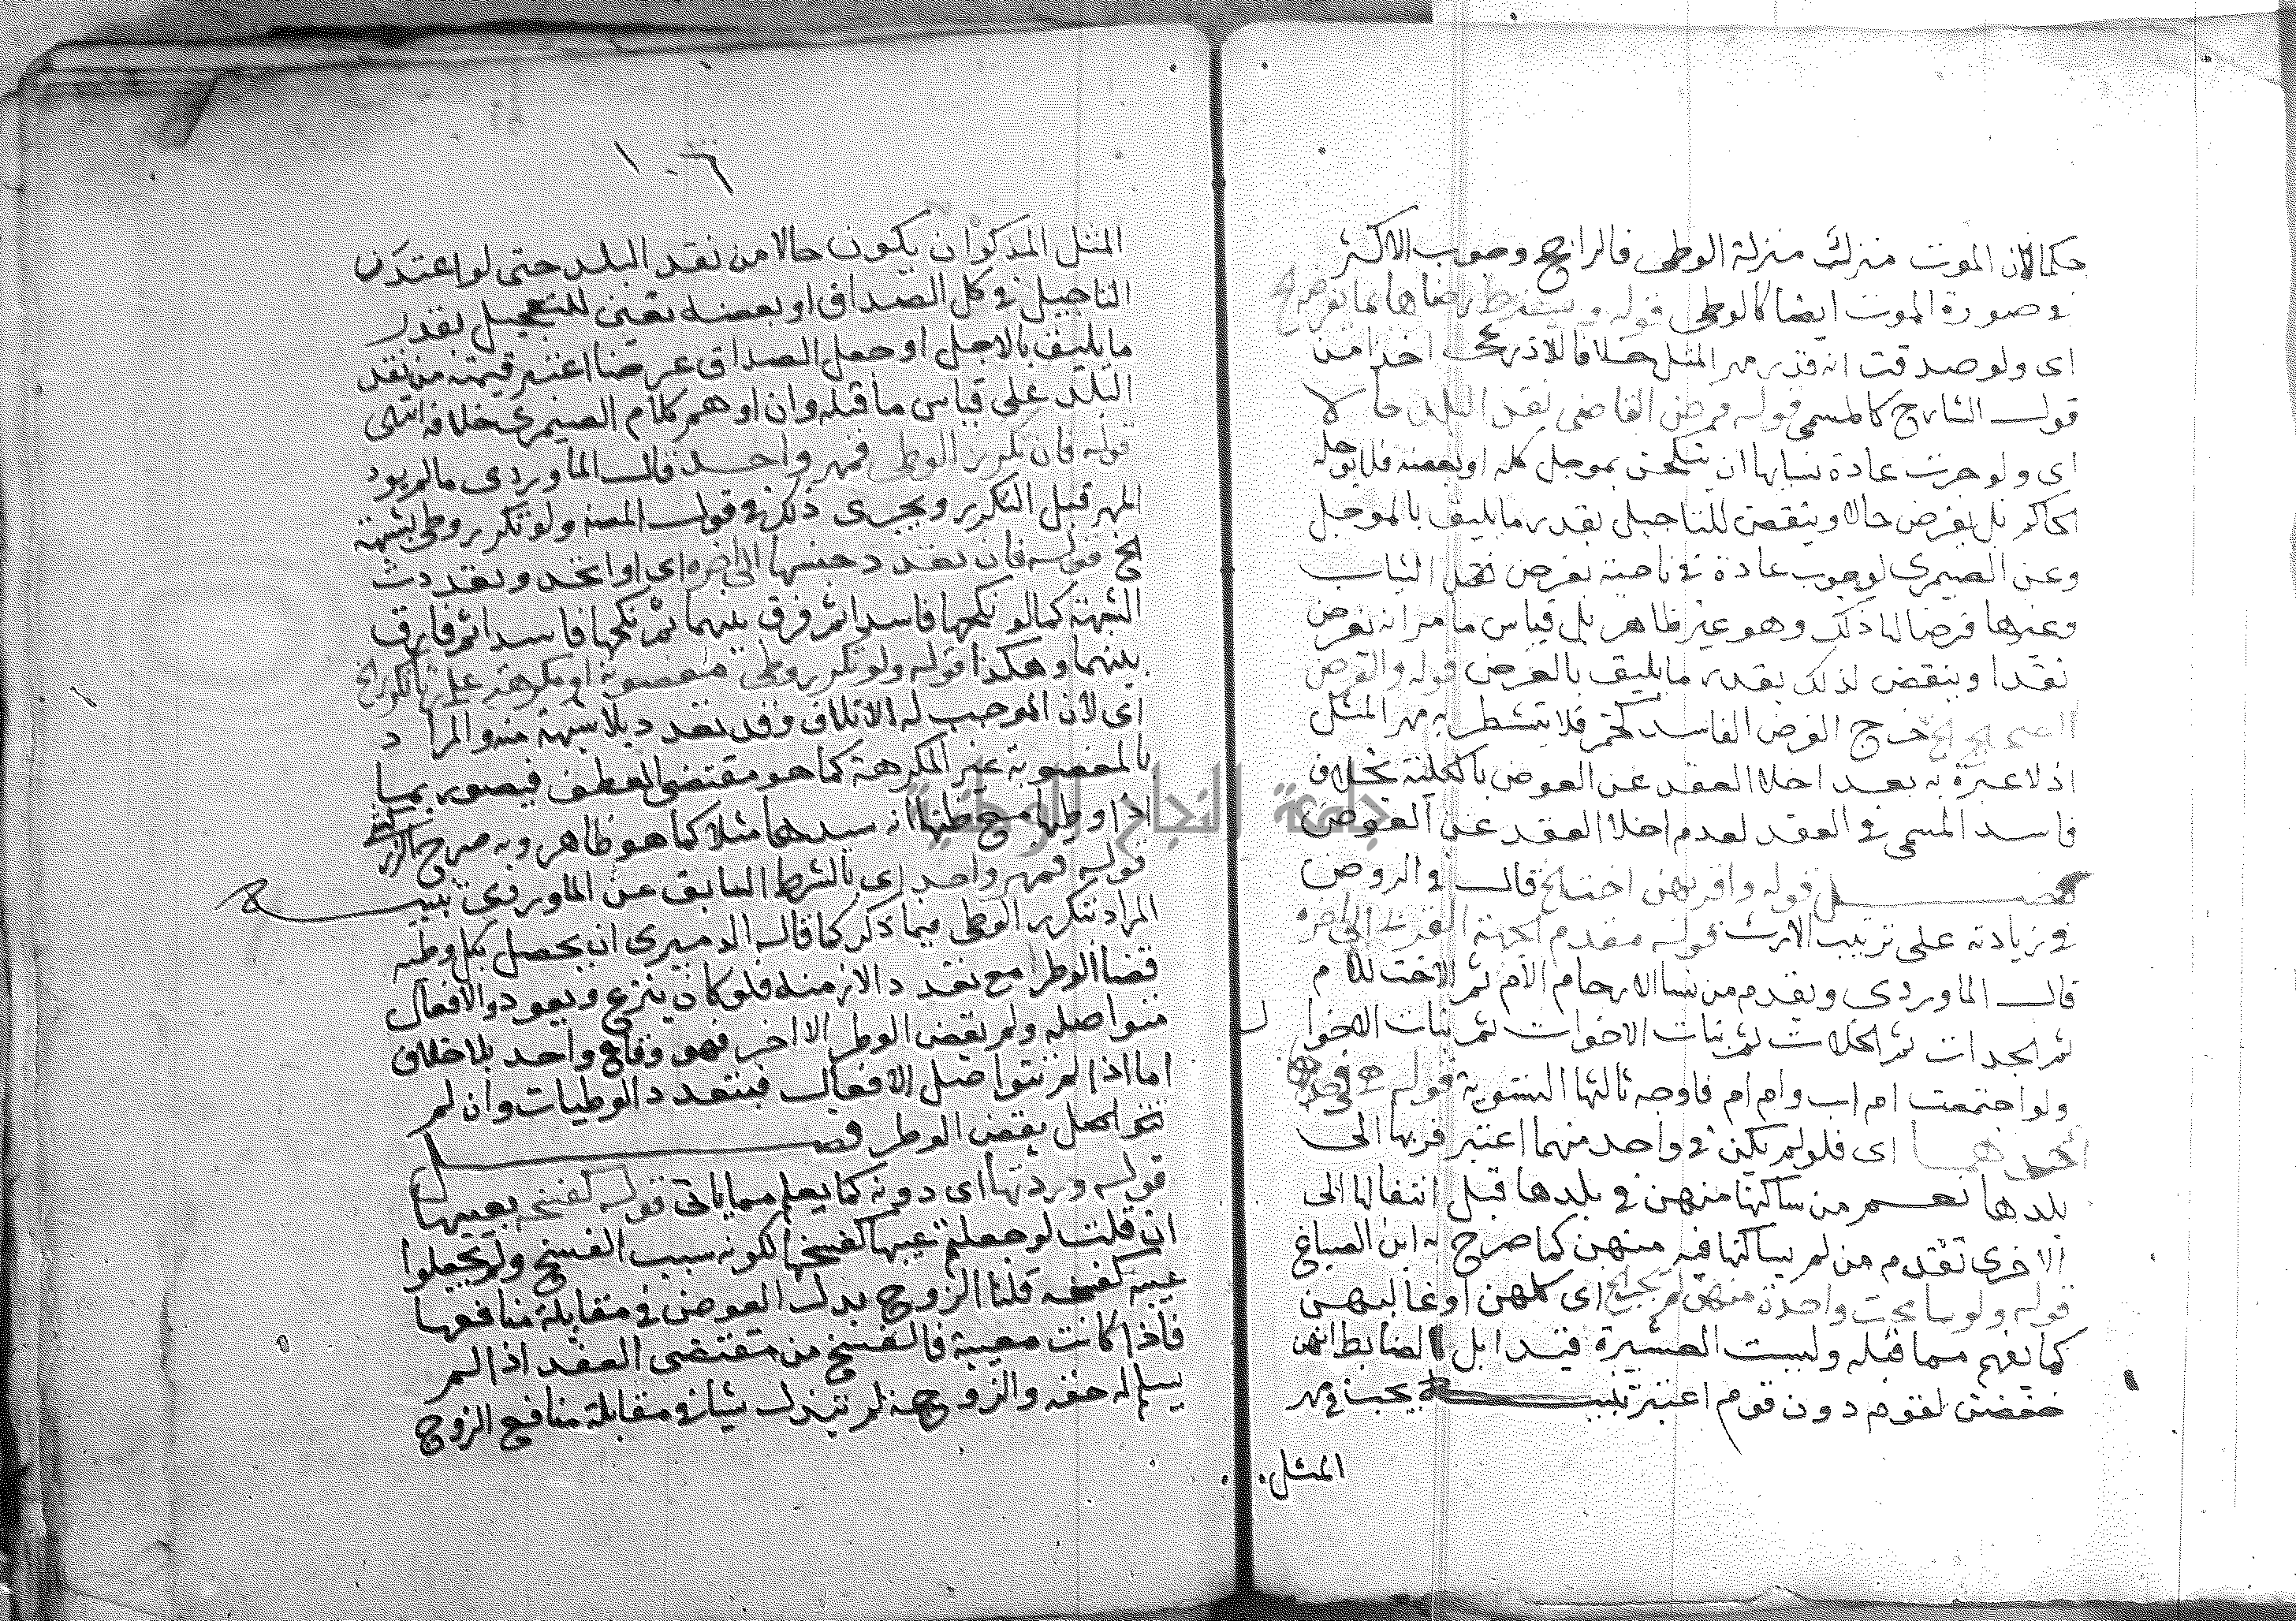 حكما لان الموت منزل منزلة الوطى فالراجح وجوب الاكثر
في صورة الموت ايضا كالوطى قوله ويشترط رضاها بما يفرضه الخ
اى ولو صدقت انه قدر مهر المثل خلافا للاذرعى اخذا من
قول الشارح كالمسمى قوله فرض القاضى نقد البلد حالا
اى ولو جرت عادة نسايها ان ينكحن بموجل كله او بعضه فلا يوجله
الحاكم بل يفرض حالا وينقص للتاجيل بقدر ما يليق بالموجل
وعن الصيمرى لو جرت عادة في ناحية بفرض الثياب
وغيرها فرضا لها ذلك وهو غير ظاهر بل قياس ما مر انه يفرض
نقدا وينقص لذلك بقدر ما يليق بالعرض قوله والفرض
الصحيح الخ خرج الفرض الفاسد كخمر فلا يتشطر به مهر المثل
اذ لا عبرة به بعد اخلا العقد عن العوض بالكلية بخلاف
فاسد المسمى في العقد لعدم اخلا العقد عن العوض
فصل قوله واقربهن اخت الخ قال في الروض
في زيادته على ترتيب الارث قوله مقدم الجهة القربى الى اخره
قال الماوردى ويقدم من نسا الارحام الام ثم الاخت للام
ثم الجدات ثم الخلات ثم بنات الاخوات ثم بنات الاخوال
ولو اجتمعت ام اب وام ام فاوجه ثالثها التسوية قوله هى فى
احدهما اى فلو لم يكن في واحد منهما اعتبر قربها الى
بلدها نعم من ساكنها منهن في بلدها قبل انتقالها الى
الاخرى تقدم من لم يساكنها فيه منهن كما صرح به ابن الصباغ
قوله ولو سامحت واحدة منهن لم يجب الخ اى كلهن او غالبهن
كما يفهم مما قبله وليست العشيرة قيدا بل الضابط انهن
خفضن لقوم دون قوم اعتبر تنبيه يجب في مهر
المثل
١٠٦
المثل المذكور ان يكون حالا من نقد البلد حتى لو اعتدن
التاجيل في كل الصداق او بعضه تعين للتعجيل بقدر
ما يليق بالاجل او جعل الصداق عرضا اعتبر قيمته من نقد
البلد على قياس ما قبله وان اوهم كلام الصيمرى خلافه انتهى
قوله فان تكرر الوطى فمهر واحد قال الماوردى ما لم يود
المهر قبل التكرير ويجرى ذلك في قول المصنف ولو تكرر وطى بشبهة
الخ قوله فان تعدد جنسها الى اخره اى او اتحد وتعددت
الشبهة كما لو نكحها فاسدا ثم فرق بينهما ثم نكحها فاسدا ثم فارق
بينهما وهكذا قوله ولو تكرر وطى مغصوبة او مكرهة على زنا تكرر الخ
اى لان الموجب له الاتلاف وقد تعدد بلا شبهة منه والمراد
بالمغصوبة غير المكرهة كما هو مقتضى العطف فيصور بما
اذا وطيها مع ظنها انه سيدها مثلا كما هو ظاهر وبه صرح
قوله فمهر واحد اى بالشرط السابق عن الماوردى تنبيه
المراد بتكرر الوطى فيما ذكر كما قاله الدميرى ان يحصل بكل وطيه
قضا الوطر مع تعدد الازمنه فلو كان ينزع ويعود والافعال
متواصله ولم يقض الوطر الا اخر فهو وقاع واحد بلا خلاف
اما اذا لم تتواصل الافعال فيتعدد الوطيات وان لم
يقض الوطر فصل
قوله وردتها اى دونه كما يعلم مما ياتى قوله كفسخه بعيبها
ان قلت لو جعلتم عيبها كفسخها لكونه سبب الفسخ ولم يجعلوا
عيبه كفسخه قلنا الزوج بدل العوض في مقابلة منافعها
فاذا كانت معيبة فالفسخ من مقتضى العقد اذ لم
يسلم له حقه والزوجة لم تبذل شيا في مقابلة منافع الزوج
جامعة النجاح الوطنية